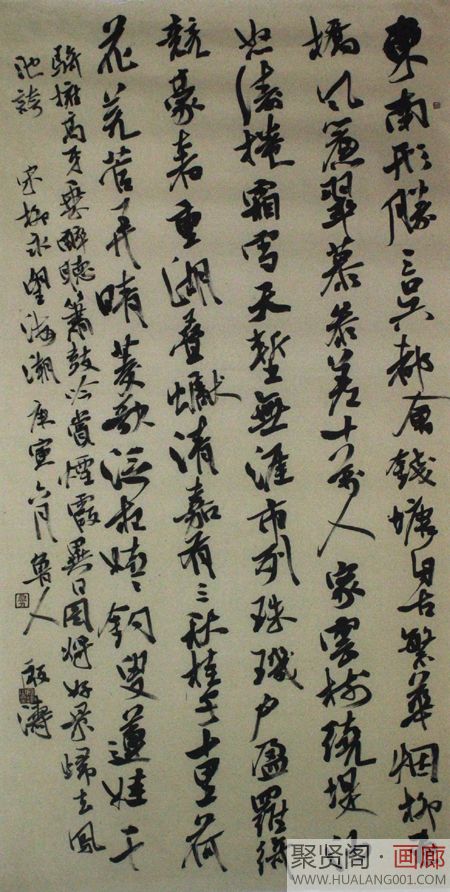 東南形勝三吳都會錢塘自古繁華烟柳畫
橋風簾翠幕參差十萬人家雲樹繞堤沙
怒濤捲霜雪天塹無涯市列珠璣戶盈羅綺
競豪奢重湖疊巘清嘉有三秋桂子十里荷
花羌管弄晴菱歌泛夜嬉々釣叟蓮娃千
騎擁高牙乘醉聽簫鼓吟賞煙霞異日圖將好景歸去鳳
池誇 宋柳永望海潮 庚寅六月 魯人 濤
聚贤阁·画廊
WWW.HUALANG001.COM